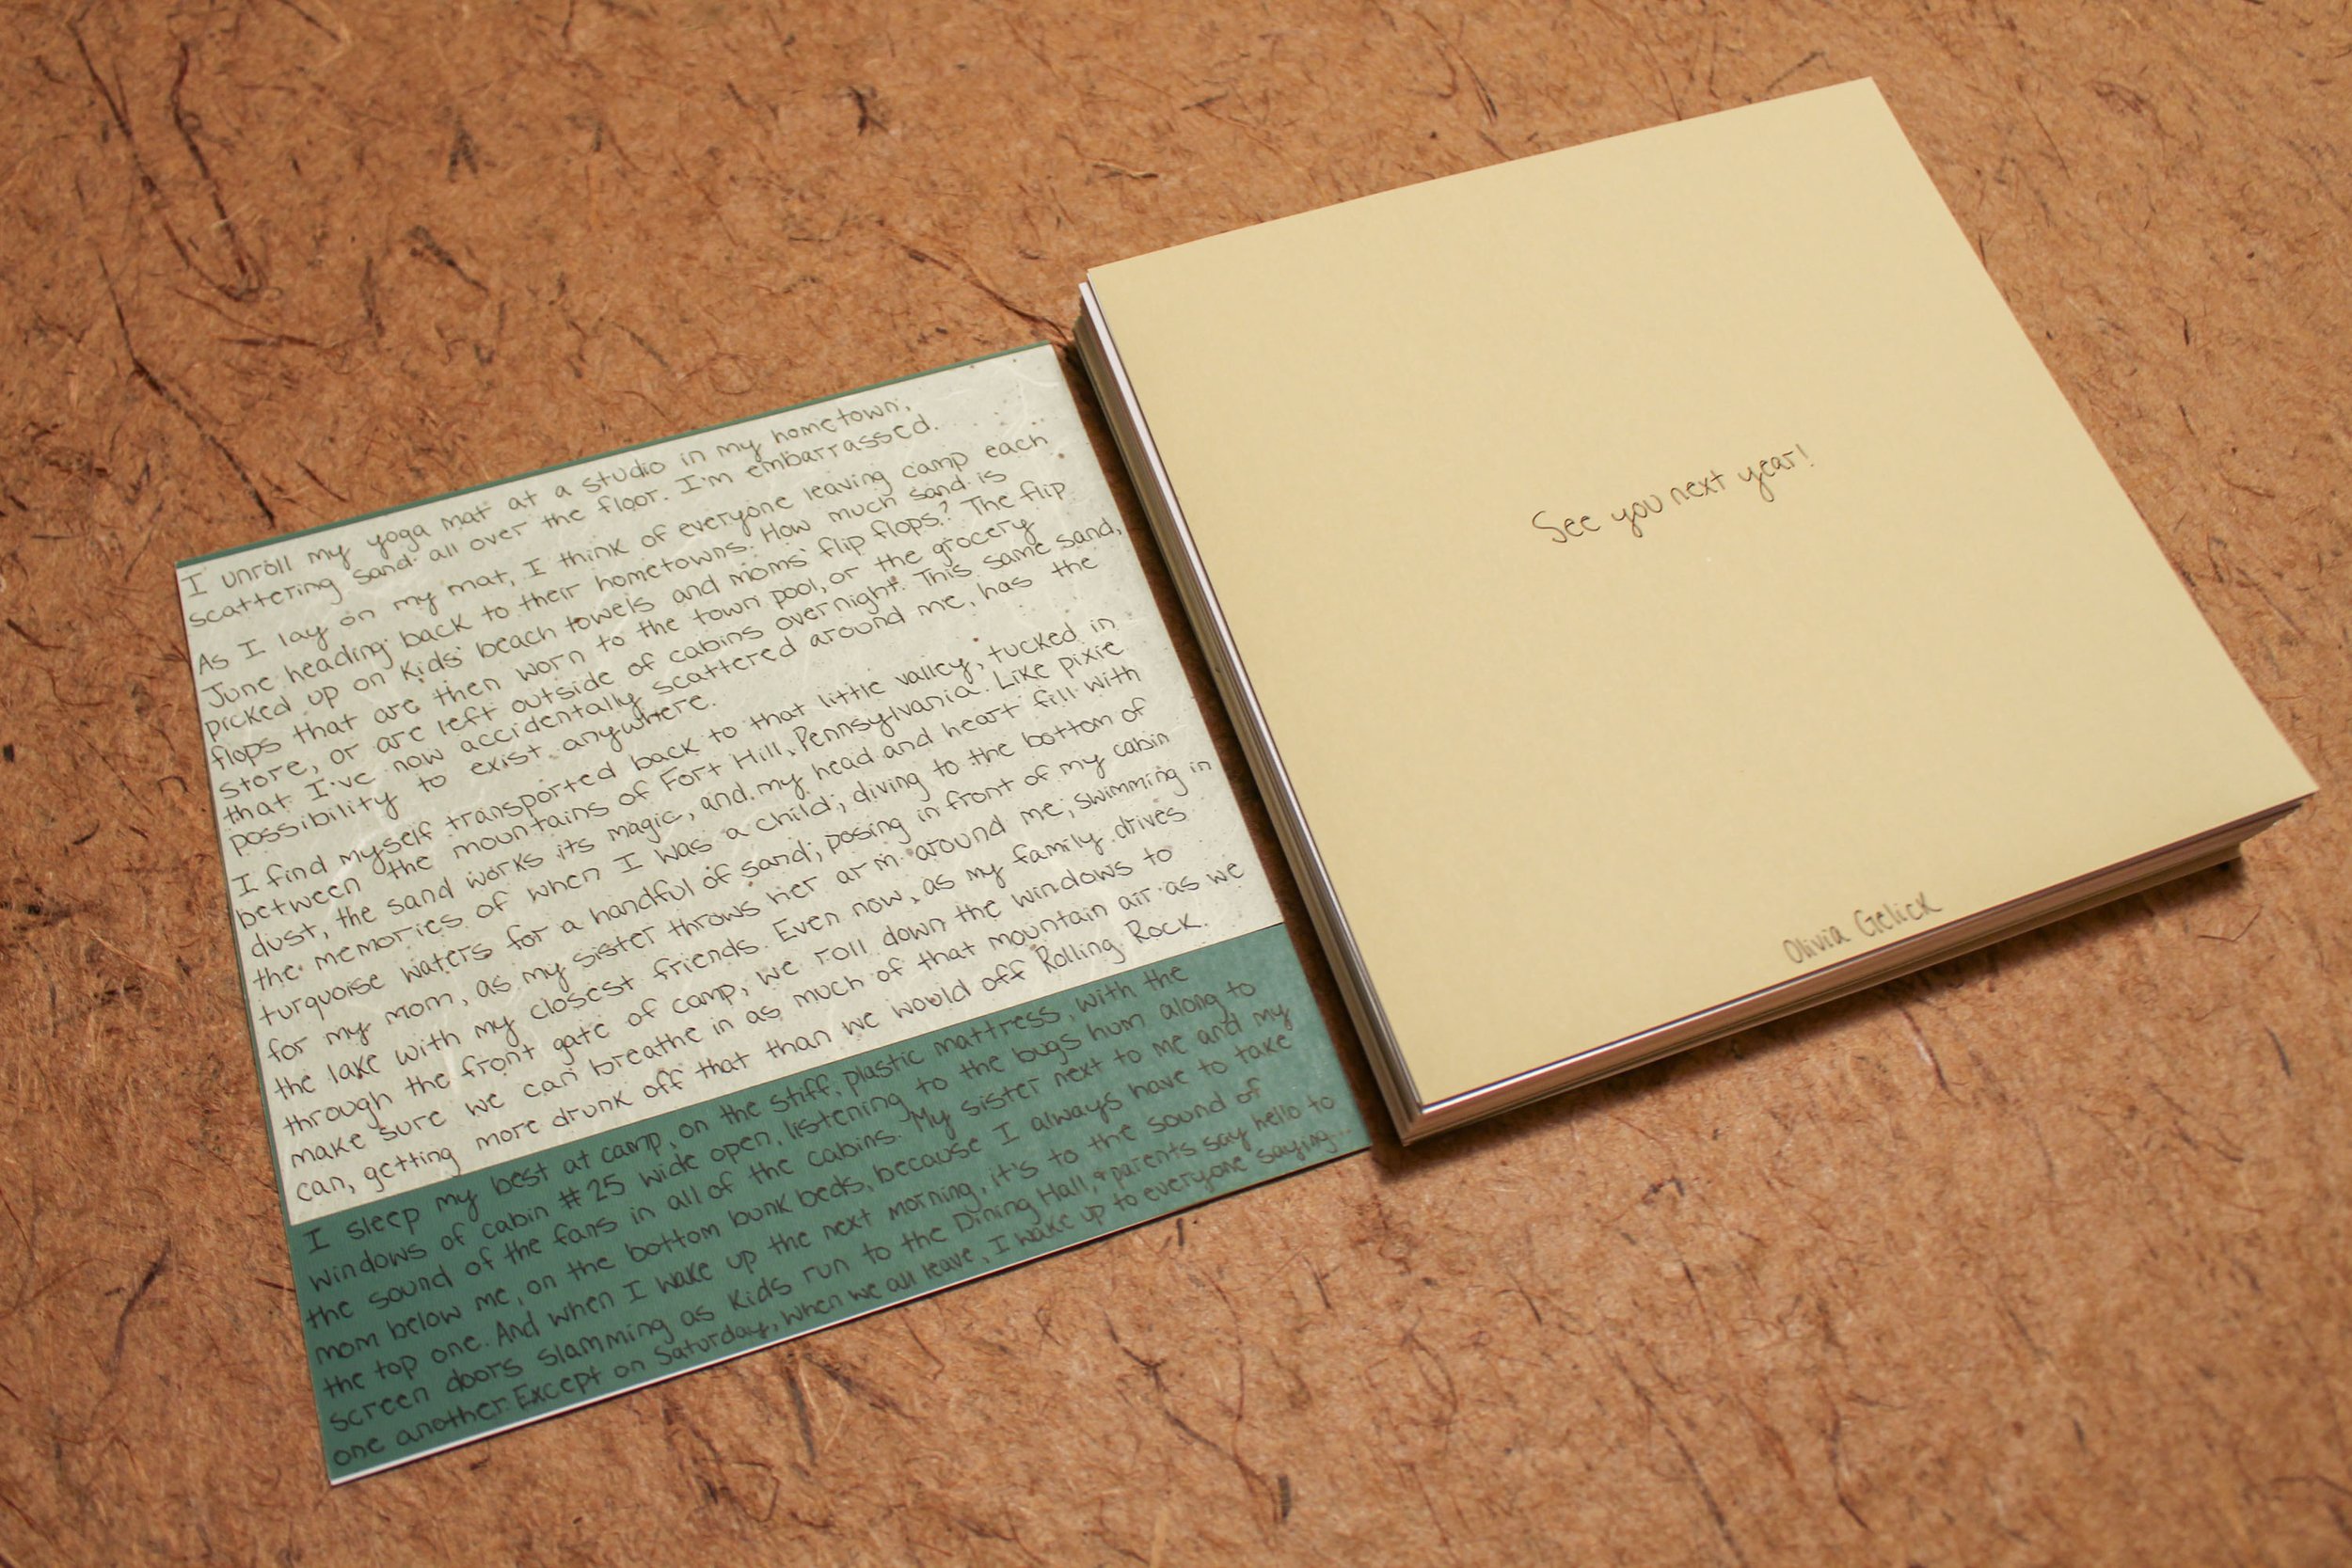 I unroll my yoga mat at a studio in my hometown,
scattering sand all over the floor. I'm embarrassed.
As I lay on my mat, I think of everyone leaving camp each
June heading back to their hometowns. How much sand is
picked up on kids' beach towels and moms' flip flops? The flip
flops that are then worn to the town pool, or the grocery
store, or are left outside of cabins overnight. This same sand,
that I've now accidentally scattered around me, has the
possibility to exist anywhere.
I find myself transported back to that little valley, tucked in
between the mountains of Fort Hill, Pennsylvania. Like pixie
dust, the sand works its magic, and my head and heart fill with
the memories of when I was a child; diving to the bottom of
turquoise waters for a handful of sand; posing in front of my cabin
for my mom, as my sister throws her arm around me; swimming in
the lake with my closest friends. Even now, as my family drives
through the front gate of camp, we roll down the windows to
make sure we can breathe in as much of that mountain air as we
can, getting more drunk off that than we would off Rolling Rock.
I sleep my best at camp, on the stiff, plastic mattress, with the
windows of cabin #25 wide open, listening to the bugs hum along to
the sound of the fans in all of the cabins. My sister next to me and my
mom below me, on the bottom bunk beds, because I always have to take
the top one. And when I wake up the next morning, it's to the sound of
screen doors slamming as kids run to the Dining Hall, & parents say hello to
one another. Except on Saturday, when we all leave, I wake up to everyone saying...
See you next year!
Olivia Gelick